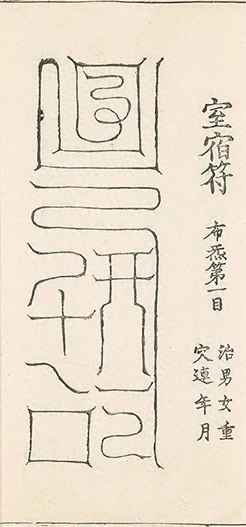 室宿符
布炁第一目
治男女重
灾連年月